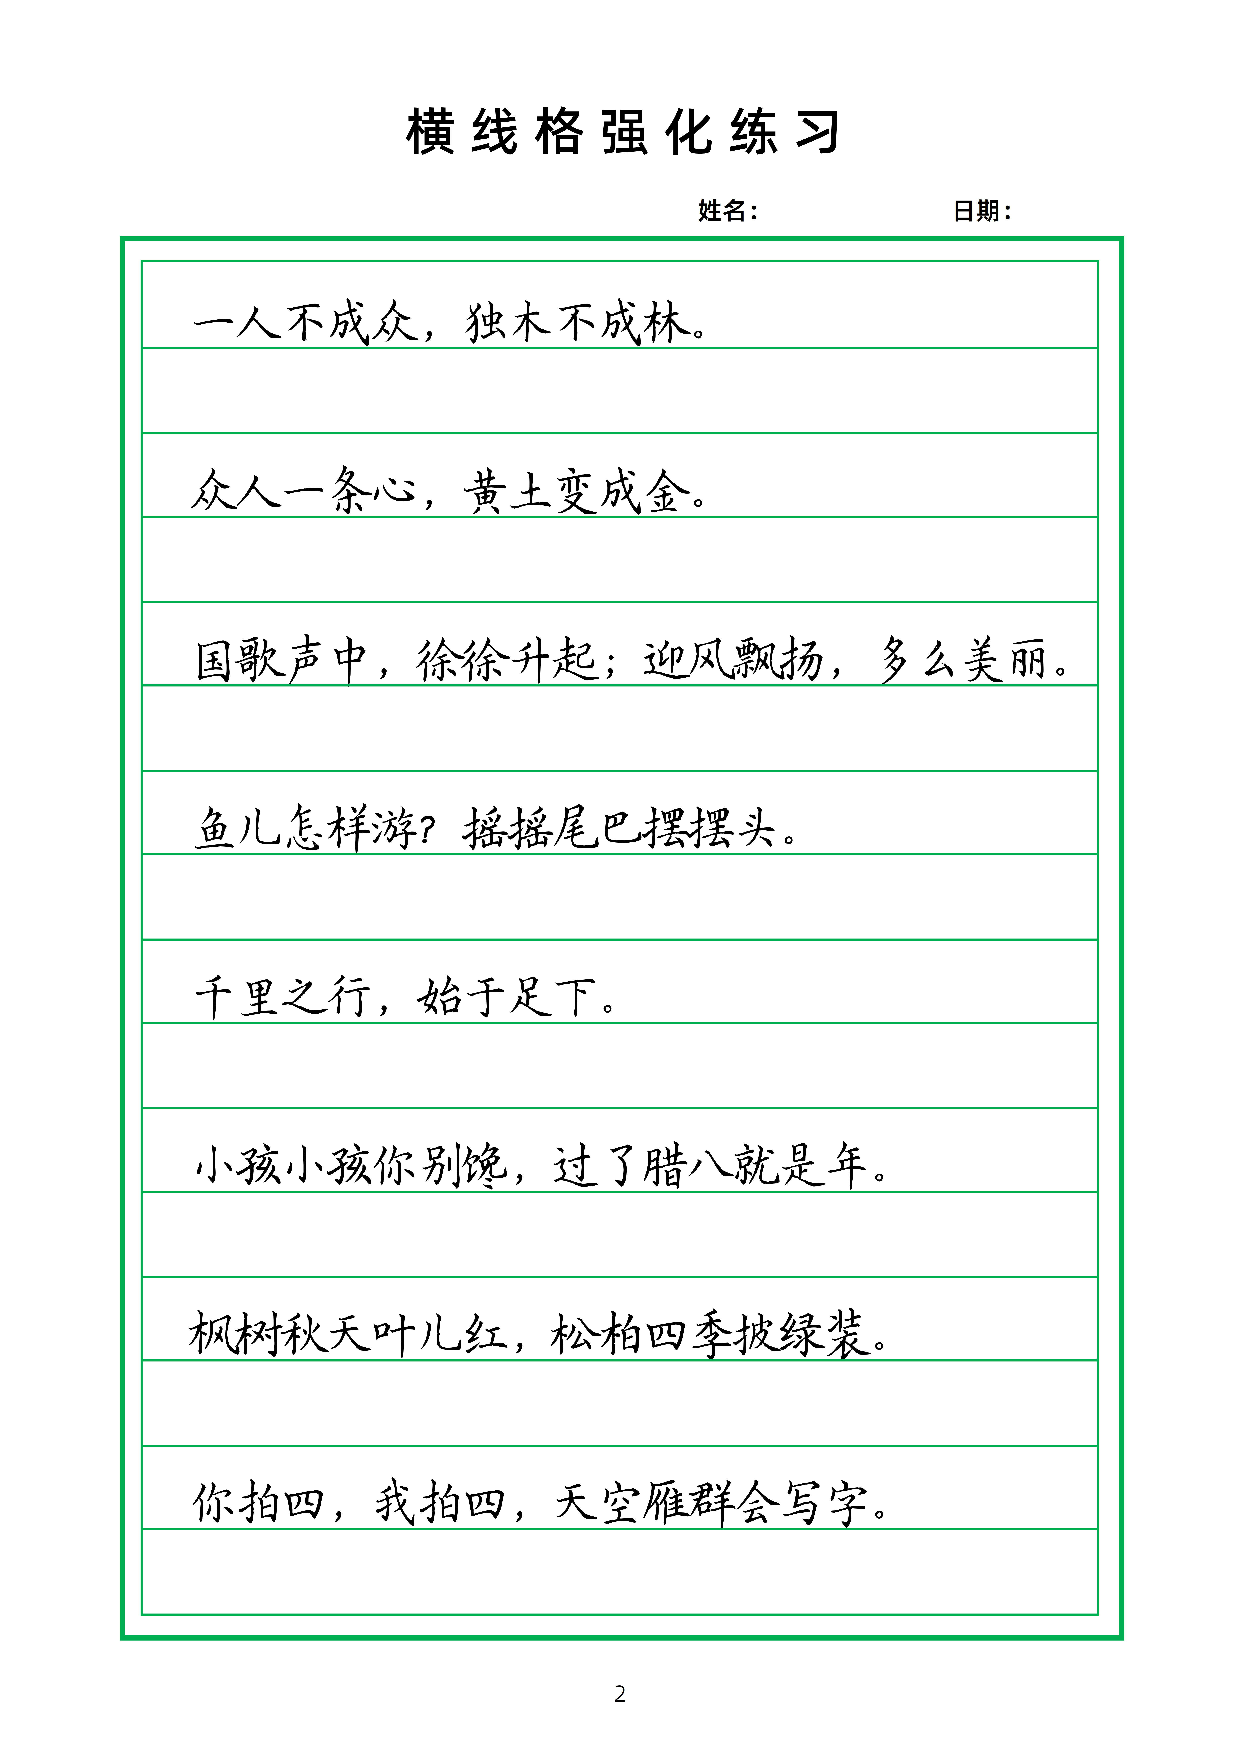 横线格强化练习
姓名： 日期：
一人不成众，独木不成林。
众人一条心，黄土变成金。
国歌声中，徐徐升起；迎风飘扬，多么美丽。
鱼儿怎样游？摇摇尾巴摆摆头。
千里之行，始于足下。
小孩小孩你别馋，过了腊八就是年。
枫树秋天叶儿红，松柏四季披绿装。
你拍四，我拍四，天空雁群会写字。
2